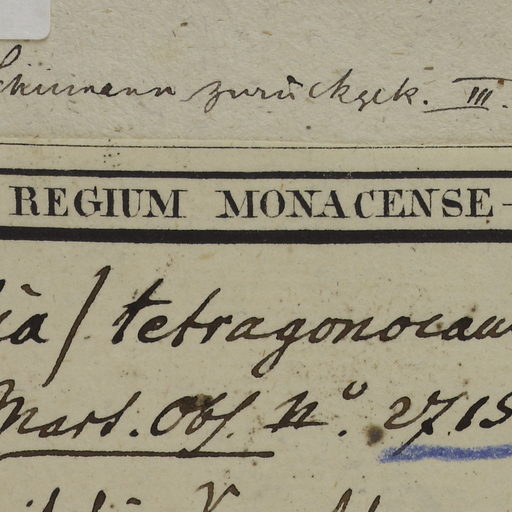 Schumann zurückgek. III.
REGIUM MONACENSE
ia / tetragonocau
Mart. Obs. N.º 2715